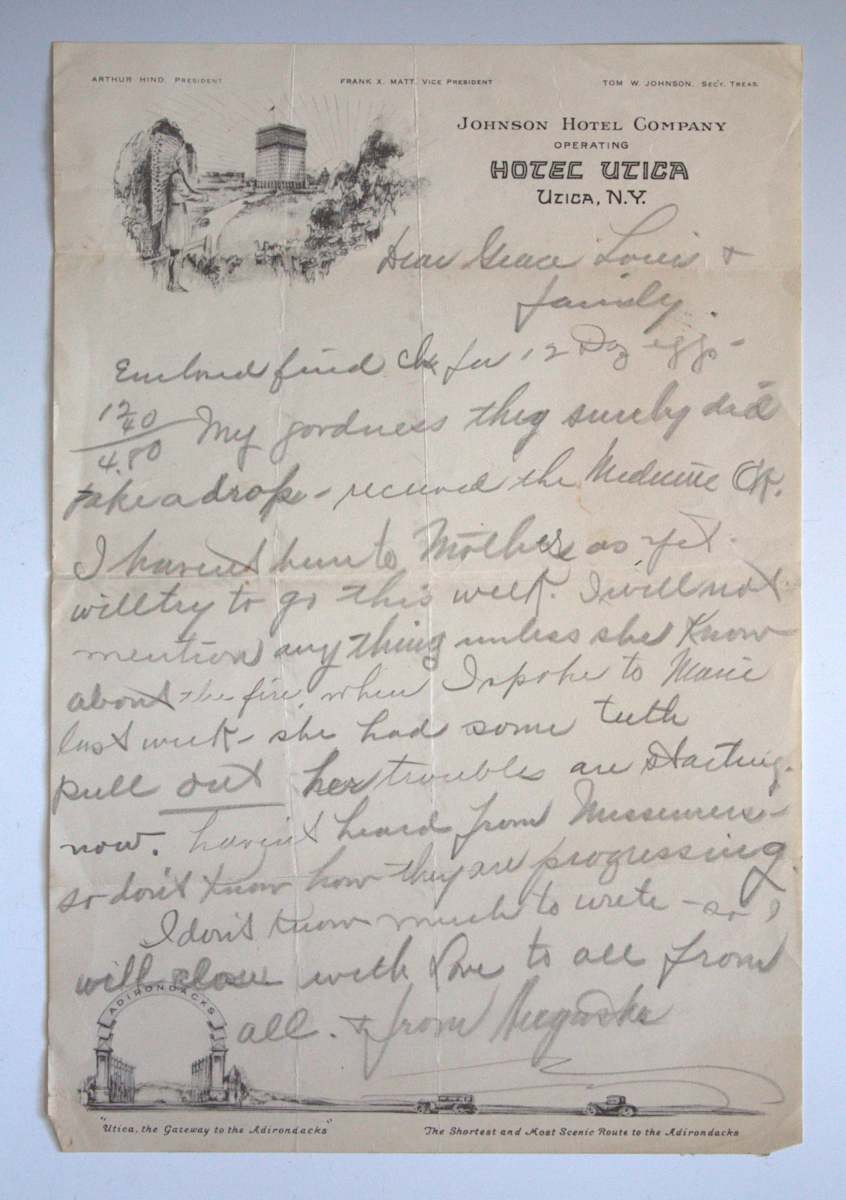 ARTHUR HIND, PRESIDENT FRANK X. MATT, VICE PRESIDENT TOM W. JOHNSON, SEC'Y. TREAS.
JOHNSON HOTEL COMPANY
OPERATING
HOTEL UTICA
UTICA, N.Y.
Dear Grace Louis &
family.
Enclosed find Ck for 12 Dz eggs -
12
40
4.80
My goodness they surely did
take a drop - received the Medicine OK.
I havent been to Mothers as yet.
will try to go this week. I will not
mention any thing unless she know
about the fire, when I spoke to Marie
last week - she had some teeth
pull out her troubles are starting.
now. havent heard from
so don't know how they are progressing
I don't know much to write - so I
will close with Love to all from
all. & from
ADIRONDACKS
"Utica, the Gateway to the Adirondacks" The Shortest and Most Scenic Route to the Adirondacks